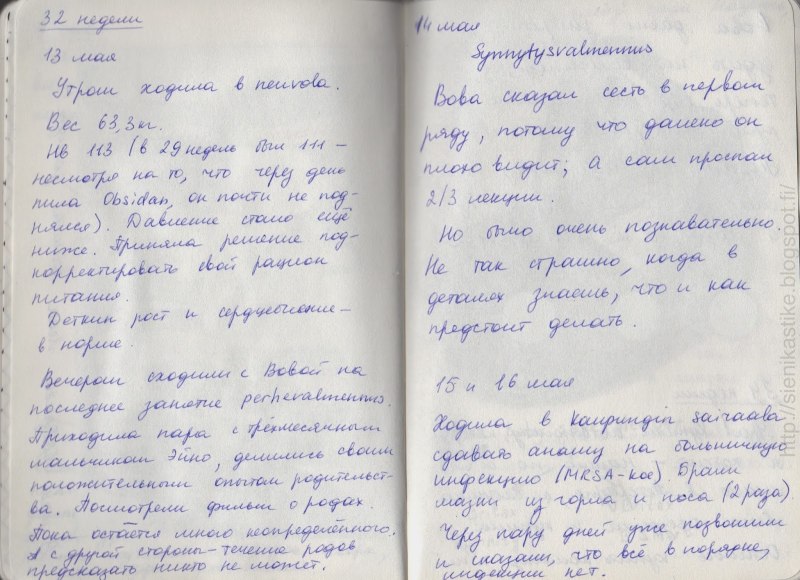 32 недели
13 мая
Утром ходила в neuvola.
Вес 63,3 кг.
Hb 113 (в 29 недель был 111 –
несмотря на то, что через день
пила Obsidan, он почти не под-
нялся). Давление стало ещё
ниже. Приняла решение под-
корректировать свой рацион
питания.
Деткин рост и сердцебиение –
в норме.
Вечером сходили с Вовой на
последнее занятие perhevalmennus.
Приходила пара с трёхмесячным
мальчиком Эйно, делились своим
положительным опытом родительст-
ва. Посмотрели фильм о родах.
Пока остаётся много неопределённого.
А с другой стороны – течение родов
предсказать никто не может.
14 мая
Synnytysvalmennus
Вова сказал сесть в первом
ряду, потому что далеко он
плохо видит; а сам проспал
2/3 лекции.
Но было очень познавательно.
Не так страшно, когда в
деталях знаешь, что и как
предстоит делать.
15 и 16 мая
Ходила в Kaupungin sairaala
сдавать анализ на больничную
инфекцию (MRSA-koe). Брали
мазки из горла и носа (2 раза).
Через пару дней уже позвонили
и сказали, что всё в порядке,
инфекции нет.
http://sienikastike.blogspot.fi/